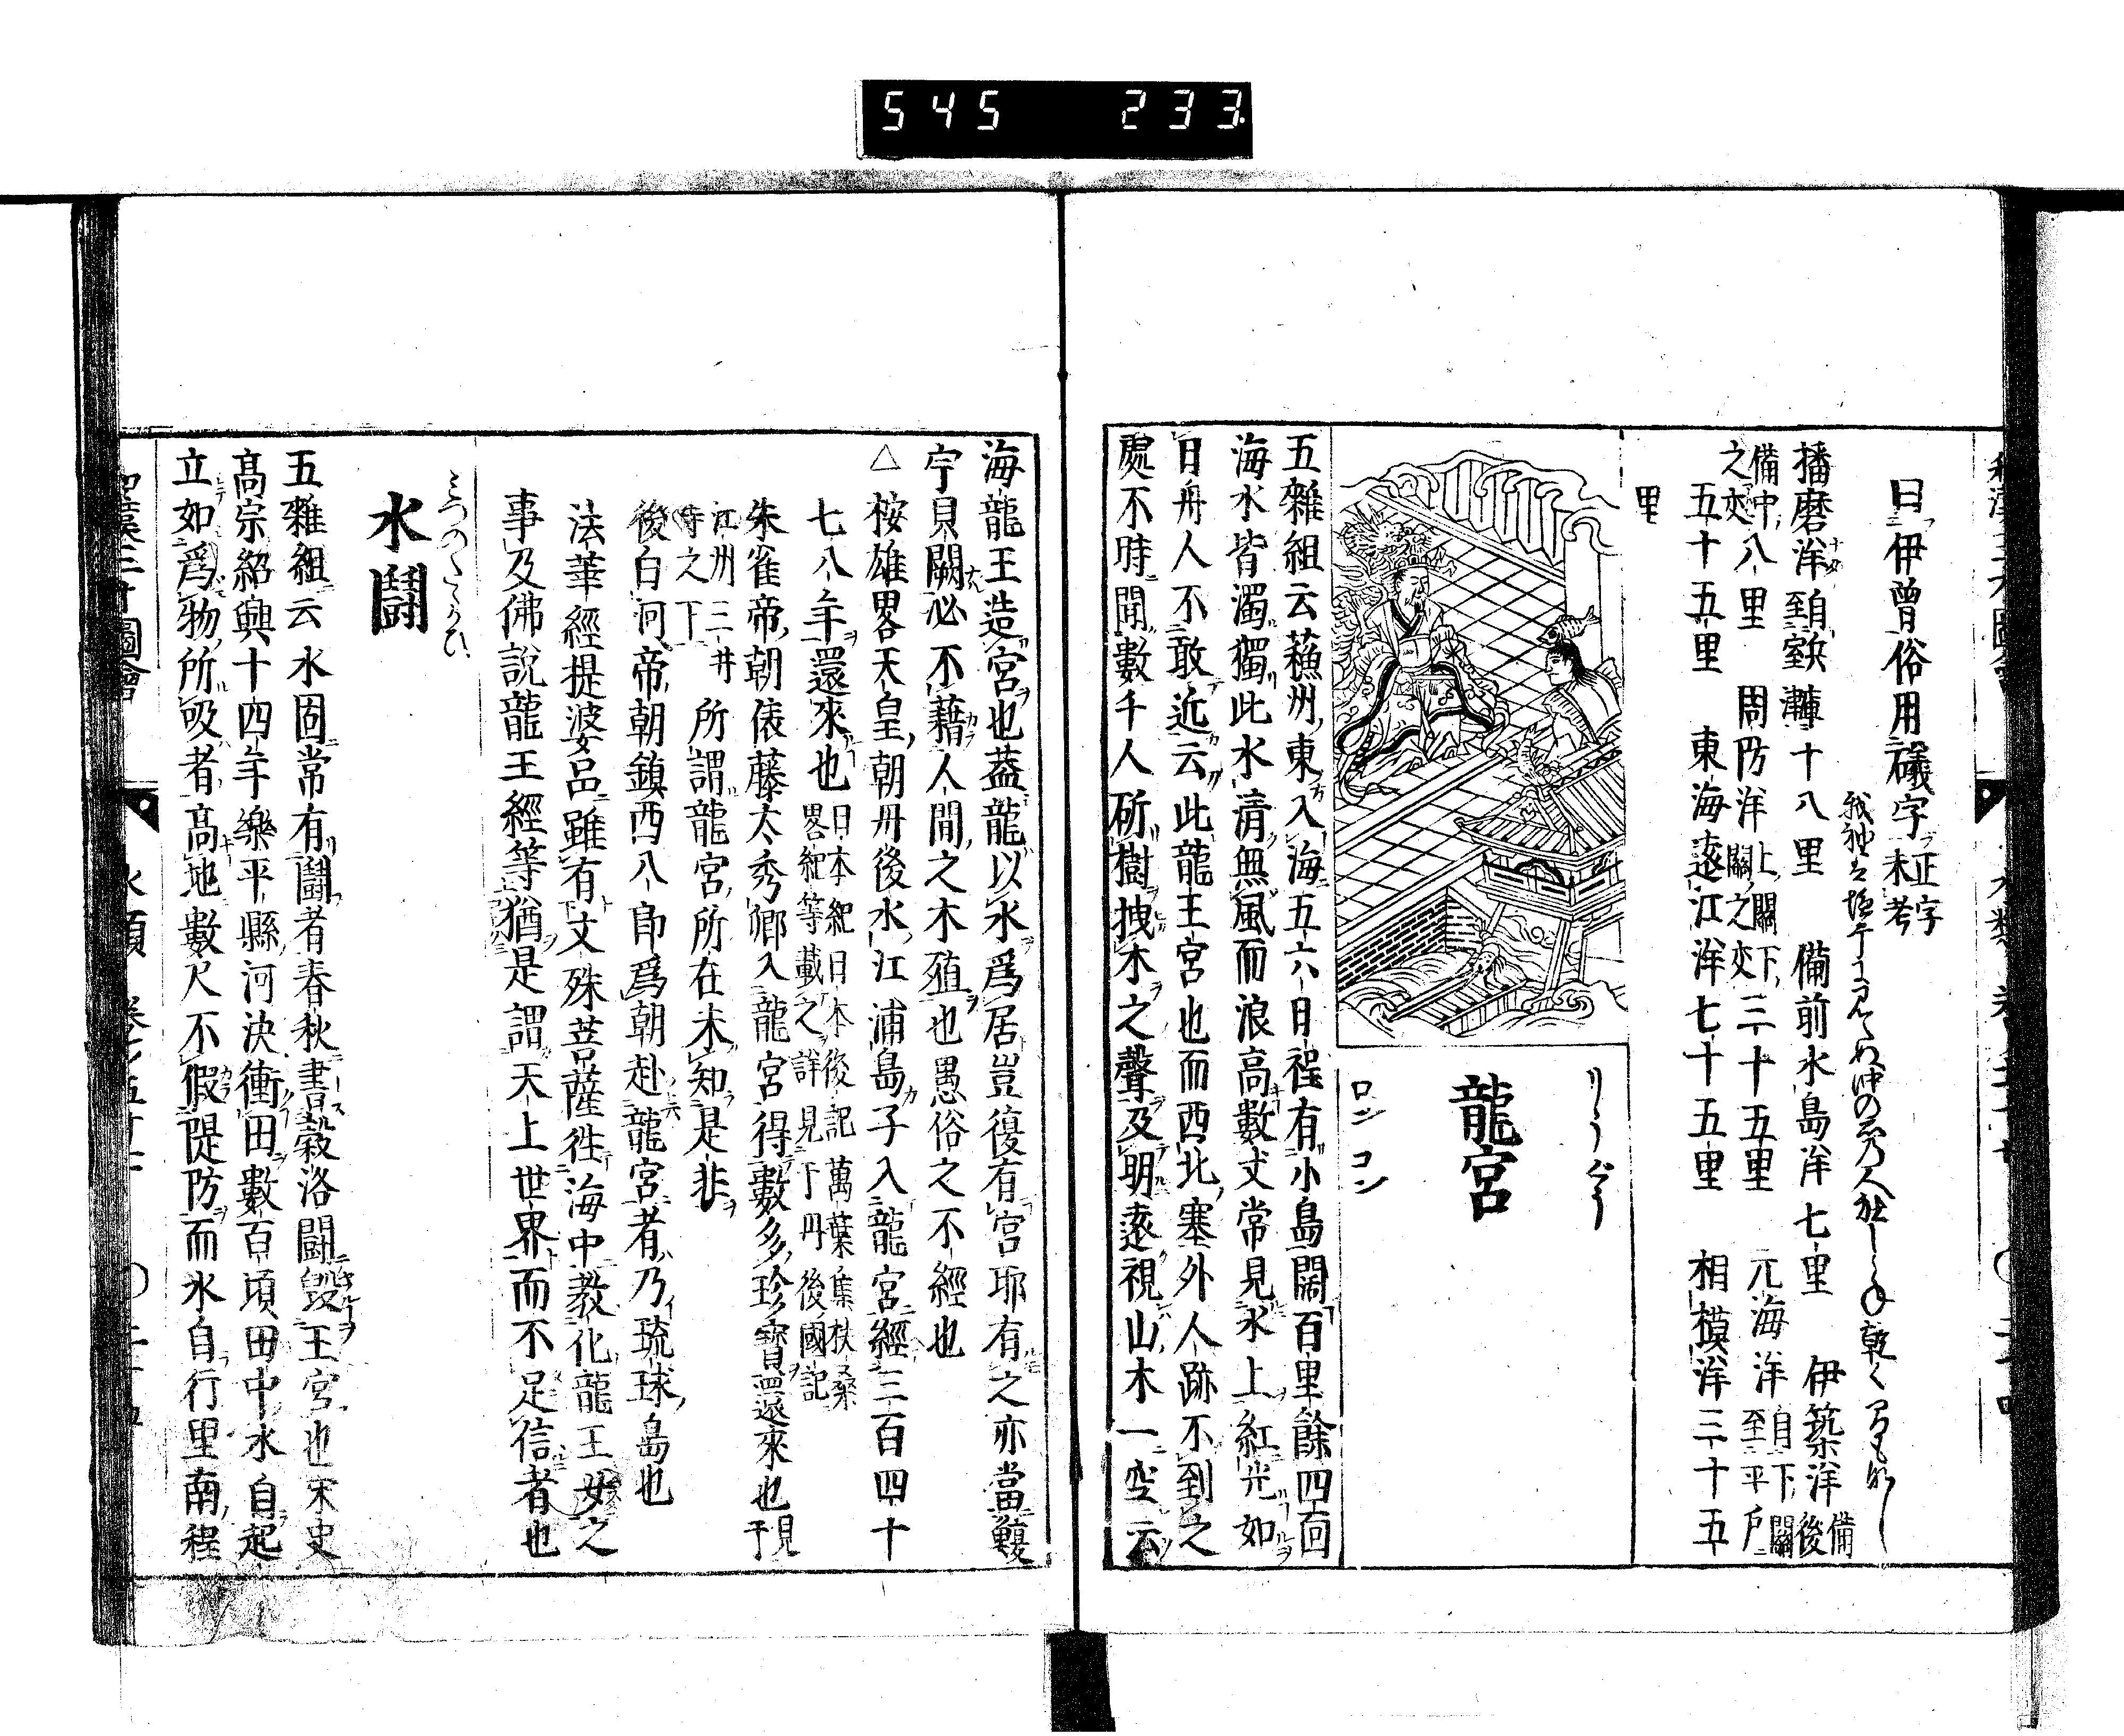 545 233
曰伊曾俗用礒字 正字未考
播磨洋 自室至鞆 十八里 備前水島洋七里 伊築洋 備後
備中之交 八里 周防洋 上關下關之交 三十五里 元海洋 自下關至平戶
五十五里 東海遠江洋七十五里 相模洋三十五
里
りうぐう
龍宮
ロン コン
五雜組云蘓州東入海五六日程有小島闊百里餘四面
海水皆濁獨此水清無風而浪高數丈常見水上紅光如
日舟人不敢近云此龍王宮也而西北塞外人跡不到之
處不時聞數千人斫樹拽木之聲及明遠視山木一空云
海龍王造宮也葢龍以水爲居豈復有宮耶有之亦當鰒
宁貝闕必不藉人間之木殖也愚俗之不經也
△桉雄畧天皇朝丹後水江浦島子入龍宮經三百四十
七八年還來也 日本紀 日本後記 萬葉集 扶桑畧紀等載之詳見于丹後國記
朱雀帝朝俵藤太秀鄉入龍宮得數多珍寶還來也 見于
江州三井寺之下 所謂龍宮所在未知是非
後白河帝朝鎮西八郎爲朝赴龍宮者乃琉球島也
法華經提婆品雖有文殊菩薩徃海中教化龍王女之
事及佛說龍王經等猶是謂天上世界而不足信者也
みつのたゝかひ
水鬪
五雜組云水固常有鬪者春秋書穀洛鬪毀王宮也宋史
高宗紹興十四年樂平縣河決衝田數百頃田中水自起
立如爲物所吸者高地數尺不假隄防而水自行里南程